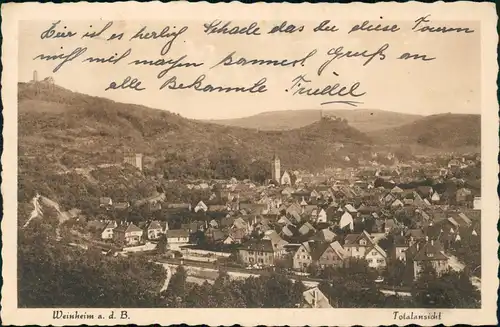 Hier ist es herlig Schade das du diese Touren
nicht mit machen kannst Gruß an
alle Bekannte Friedel
Weinheim a. d. B. Totalansicht